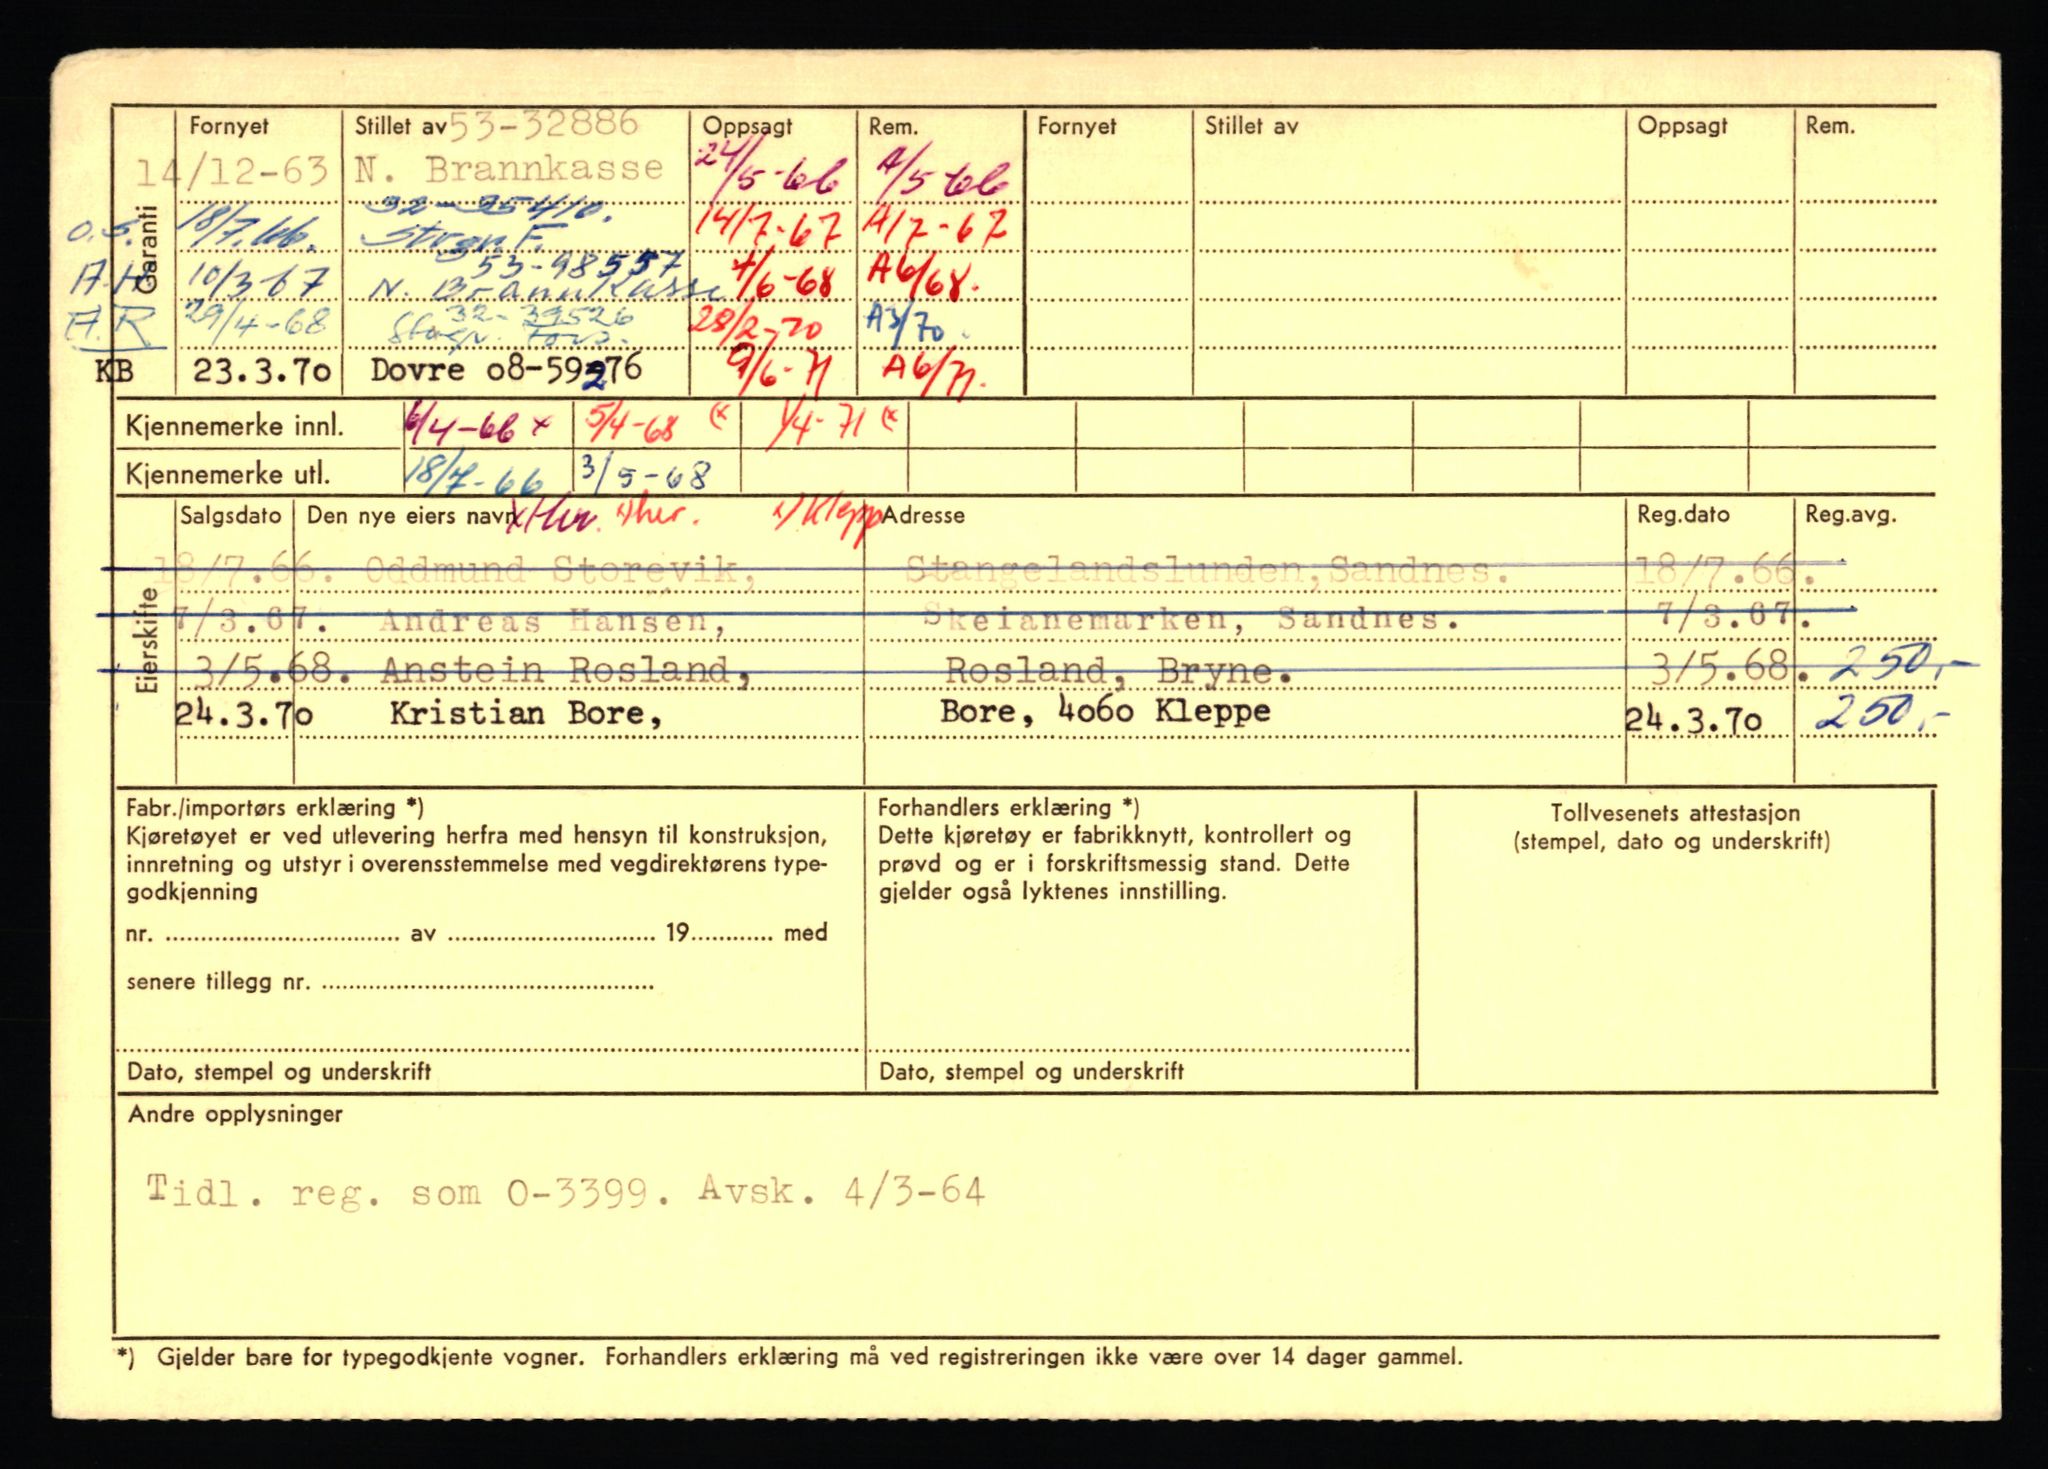 Fornyet Stillet av 53-32886 Oppsagt Rem. Fornyet Stillet av Oppsagt Rem.
14/12-63 N. Brannkasse 24/5-66 A/5-66
Garanti
32-25410.
O.S. 18/7.66. F. 14/7-67 A/7-67
53-98557
A.H 10/3-67 N. Brannkasse 4/6-68 A6/68.
32-39526
A.R 29/4-68 28/2-70 A3/70.
KB 23.3.70 Dovre 08-59276 9/6-71 A6/71.
Kjennemerke innl. 6/4-66 x 5/4-68 (x 1/4-71 (x
Kjennemerke utl. 18/7-66 3/5-68
Salgsdato Den nye eiers navn x) Her. x) her. x) Klepp Adresse Reg.dato Reg.avg.
Eierskifte
18/7.66. Oddmund Storevik, Stangelandslunden, Sandnes. 18/7.66.
7/3.67. Andreas Hansen, Skeianemarken, Sandnes. 7/3.67.
3/5.68. Anstein Rosland, Rosland, Bryne. 3/5.68. 250,-
24.3.70 Kristian Bore, Bore, 4060 Kleppe 24.3.70 250,-
Fabr./importørs erklæring *)
Kjøretøyet er ved utlevering herfra med hensyn til konstruksjon,
innretning og utstyr i overensstemmelse med vegdirektørens type-
godkjenning
nr. .................... av .................... 19............ med
senere tillegg nr. ....................
Dato, stempel og underskrift
Forhandlers erklæring *)
Dette kjøretøy er fabrikknytt, kontrollert og
prøvd og er i forskriftsmessig stand. Dette
gjelder også lyktenes innstilling.
Dato, stempel og underskrift
Tollvesenets attestasjon
(stempel, dato og underskrift)
Andre opplysninger
Tidl. reg. som O-3399. Avsk. 4/3-64
*) Gjelder bare for typegodkjente vogner. Forhandlers erklæring må ved registreringen ikke være over 14 dager gammel.